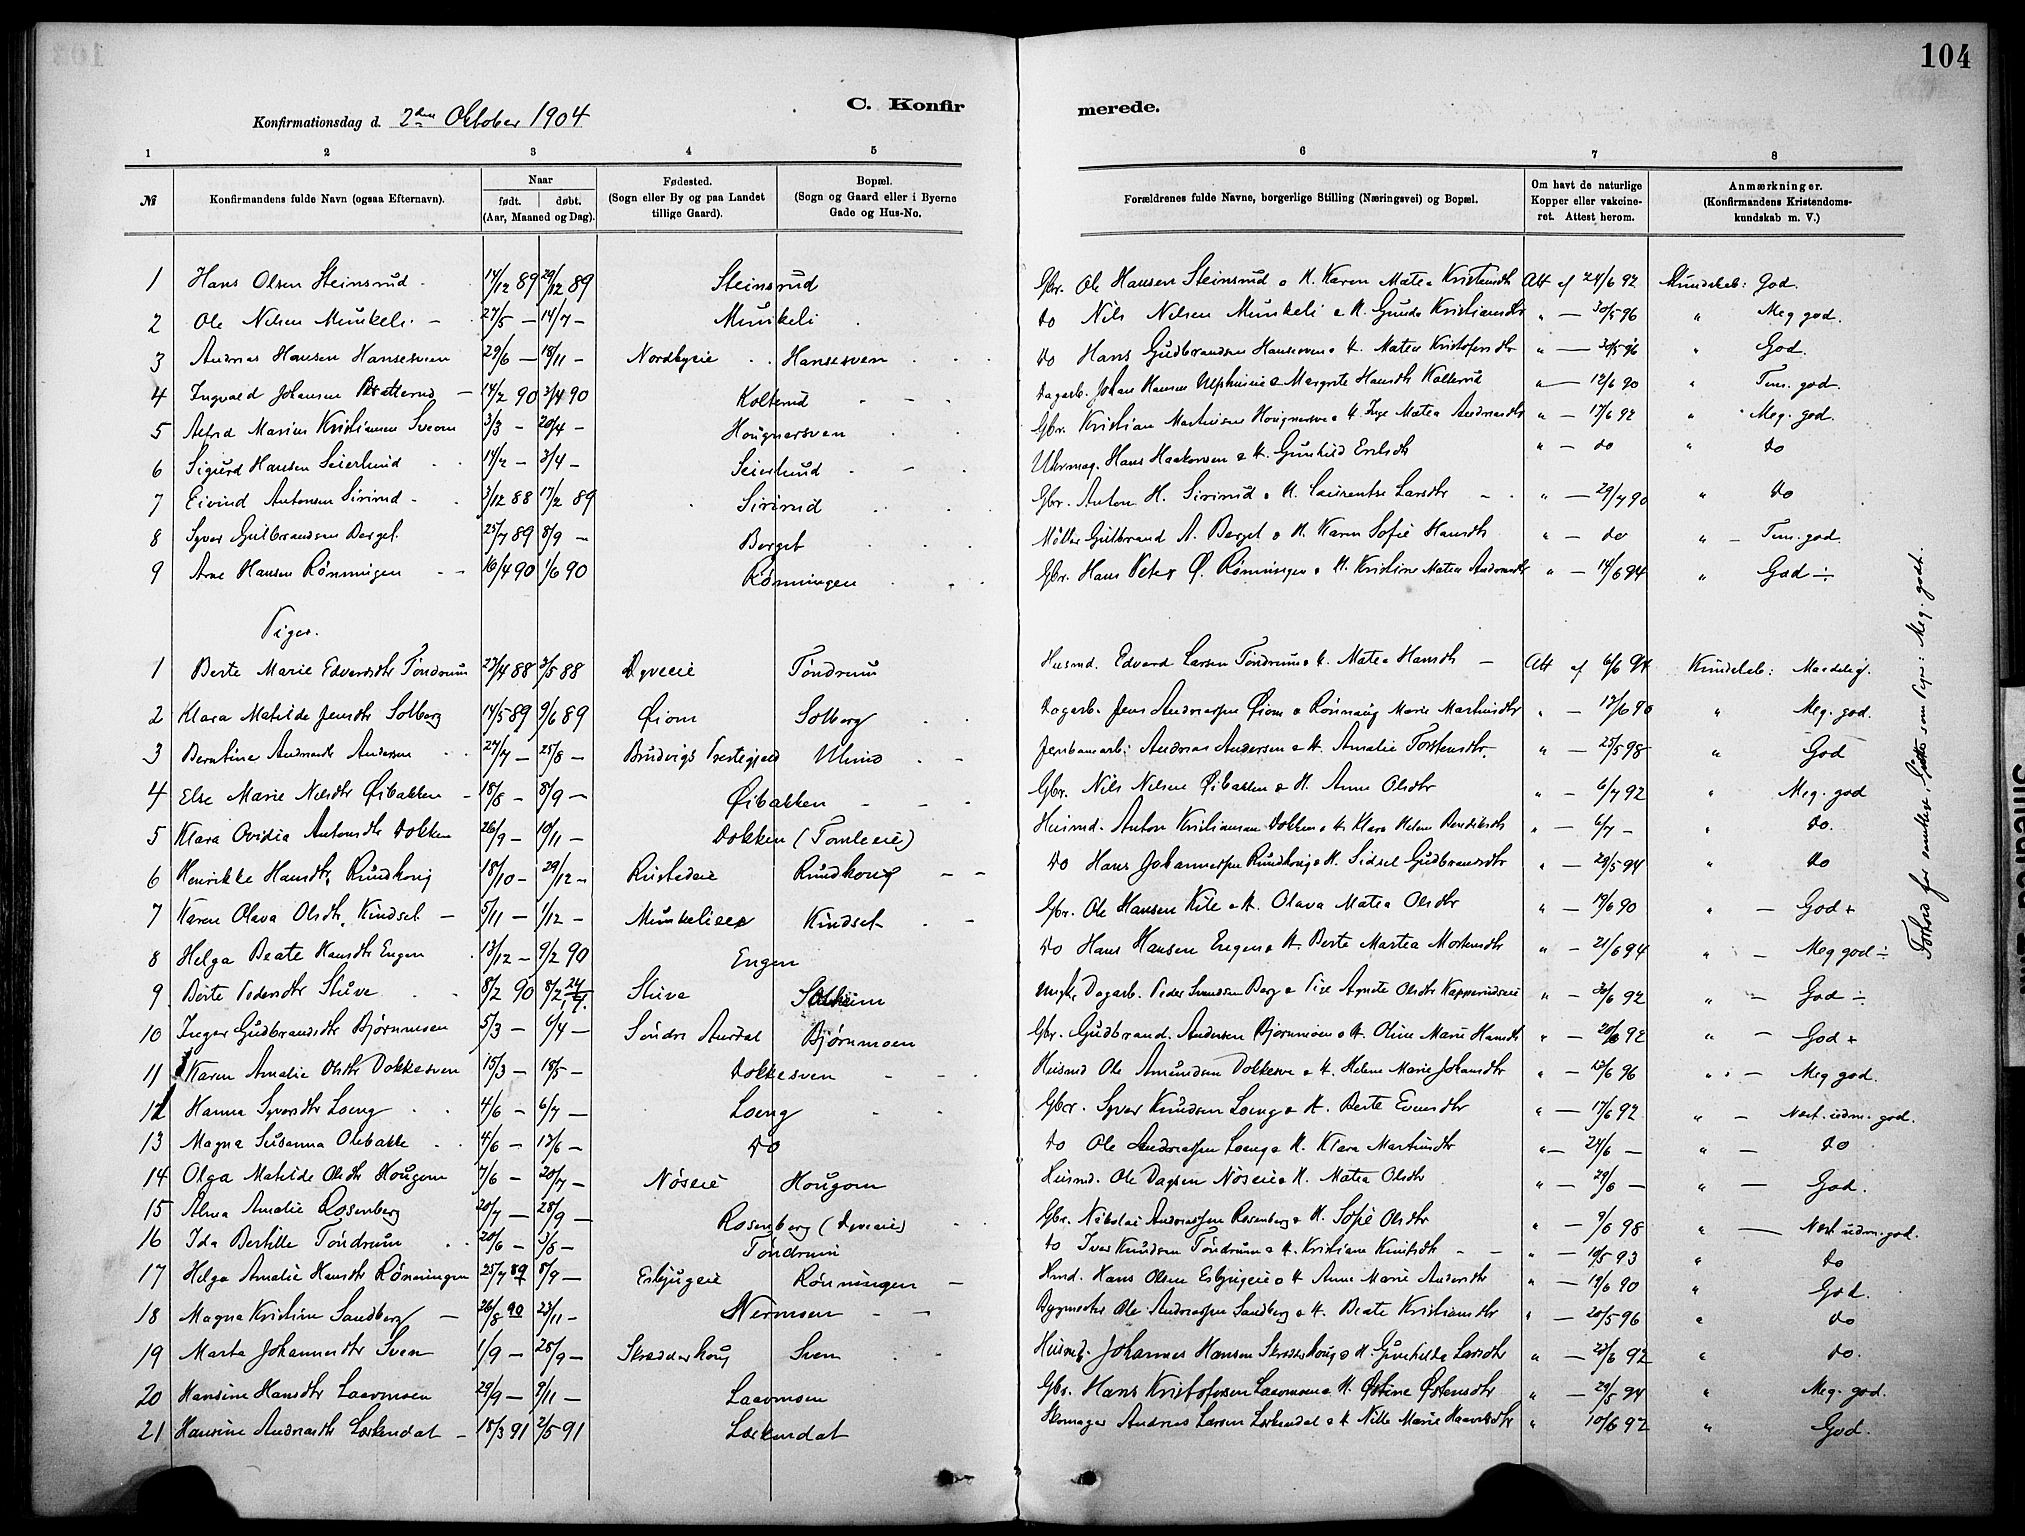 104
C. Konfirmerede.
Konfirmationsdag d. 2den Oktober 1904
1 2 3 4 5 6 7 8
№ Konfirmandens fulde Navn (ogsaa Efternavn). Naar født. døbt. (Aar, Maaned og Dag). Fødested. (Sogn eller By og paa Landet tillige Gaard). Bopæl. (Sogn og Gaard eller i Byerne Gade og Hus-No. Forældrenes fulde Navne, borgerlige Stilling (Næringsvei) og Bopæl. Om havt de naturlige Kopper eller vakcineret. Attest herom. Anmærkninger. (Konfirmandens Kristendomskundskab m. V.)
1 Hans Olsen Steinsrud 14/12 89 29/12 89 Steinsrud Gbr. Ole Hansen Steinsrud o H. Karen Matea Kristensdtr Att af 24/6 92 Kundskab: God.
2 Ole Nilsen Munkeli 27/5 — 14/7 — Munkeli do Nils Nilsen Munkeli o H. Gunda Kristiansdtr " — 30/5 96 " Meg god.
3 Andreas Hansen Hansesven 29/6 — 18/11 — Nordbyeie Hansesven do Hans Gudbrandsen Hansesven o H. Matea Kristofersdtr " — 30/5 96 " God.
4 Ingvald Johansen 14/2 90 7/4 90 Kolterud Dagarb. Johan Hansen o Margrete Hansdtr Kolterud " — 12/6 90 " Tem. god.
5 Astrid Marien Kristiansen Sveom 3/3 — 20/4 — Hougnersven Gbr. Kristian Martinsen Hougnersven o H. Inge Matea Andreasdtr " — 17/6 92 " Meg. god.
6 Sigurd Hansen Seierlund 14/2 — 3/4 — Seierlund Uhrmag. Hans Haakonsen o H. Gunhild Eriksdtr " — do " do
7 Eivind Antonsen Sivirud 3/12 88 17/2 89 Sivirud Gbr. Anton H. Sivirud o H. Laurentse Larsdtr " — 29/7 90 " do
8 Syver Gulbrandsen Berget 25/7 89 8/9 — Berget Møller Gulbrand A. Berget o H. Karen Sofie Hansdtr " — do " — Tem. god.
9 Arne Hansen Rønningen 16/4 90 1/6 90 Rønningen Gbr. Hans Peter O. Rønningen o H. Kristine Matea Andreasdtr " — 14/6 94 " God ÷
Piger.
1 Berte Marie Edvardsdtr Tøndrum 23/4 88 3/5 88 Dyveeie Tøndrum Husmd. Edvard Larsen Tøndrum o H. Matea Hansdtr — Att af 6/6 94 Kundskab: Maadelig.
2 Klara Matilde Jensdtr Solberg 14/5 89 9/6 89 Øiom Solberg Dagarb. Jens Andreassen Øiom o Rønnaug Marie Martinsdtr " — 17/6 90 " Meg. god.
3 Berntine Andreasdtr Andersen 27/7 — 25/8 — Brudvigs Prestegjeld Ulmo Jernbanearb. Andreas Andersen o H. Amalie Torstensdtr. " — 25/5 98 " God
4 Else Marie Nilsdtr Øibakken 18/8 — 8/9 — Øibakken Gbr. Nils Nilsen Øibakken o H. Anne Olsdtr " — 6/7 92 " Meg. god
5 Klara Ovidia Antonsdtr Dokken 26/9 — 10/11 — Dokken (Tomleeie) Husmd. Anton Kristiansen Dokken o H. Klara Helene Bendiksdtr " — 6/7 — " do.
6 Henrikke Hansdtr Rundhoug 18/10 — 29/12 — Rustedeie Rundhoug do Hans Johannessen Rundhoug o H. Sidsel Gudbrandsdtr " — 29/5 94 " do
7 Karen Olava Olsdtr Kindset 5/11 — 1/12 — Munkelieie Kindset Gbr. Ole Hansen o H. Olava Matea Olsdtr " — 19/6 90 " — God +
8 Helga Beate Hansdtr Engen 13/12 — 9/2 90 Engen do Hans Hansen Engen o H. Berte Martea Mortensdtr " — 21/6 94 " — Meg god ÷
9 Berte Pedersdtr Stuve 8/2 90 Stuve Ungkr Dagarb. Peder Svendsen Berg o Pige Agnete Olsdtr Kapperudseie " — 30/6 92 " — God ÷
10 Inger Gudbrandsdtr Bjørnmoen 5/3 — 6/4 — Søndre Aurdal Bjørnmoen Gbr. Gudbrand Andersen Bjørnmoen o H. Oline Marie Hansdtr " — 20/6 92 " — God +
11 Karen Amalie Olsdtr Dokkesven 15/3 — 18/5 — Dokkesven Husmd Ole Amundsen Dokkesve o H. Helene Marie Johansdtr " — 23/6 96 " — Meg god.
12 Hanna Syversdtr Loeng 4/6 — 6/7 — Loeng Gbr. Syver Knudsen Loeng o H. Berte Evensdtr " — 17/6 92 " — Næst. udm. god.
13 Magna Susanna Olebakke 4/6 — 13/6 — do do Ole Andreassen Loeng o H. Klara Martinsdtr " — 24/6 — " — do
14 Olga Matilde Olsdtr Hougom 7/6 — 20/7 — Nøseie Hougom Husmd. Ole Dagsen Nøseie o H. Matea Olsdtr " — 29/6 — " — God.
15 Alma Amalie Rosenberg 20/7 — 28/9 — Rosenberg (Dyveeie) Gbr. Nikolai Andreassen Rosenberg o H. Sofie Olsdtr " — 9/6 98 " — Næst udm. god.
16 Ida Bertille Tøndrum 20/6 — 3/8 — Tøndrum do Iver Knudsen Tøndrum o H. Kristiane Knutsdtr — " — 10/5 93 " do
17 Helga Amalie Hansdtr Rønningen 25/7 89 8/9 — Esbjugeie Rønningen — Hmd. Hans Olsen Esbjugeie o H. Anne Marie Andersdtr " — 19/6 90 " God.
18 Magna Kristine Sandberg 26/8 90 23/11 — Nermoen Bygmester Ole Andreassen Sandberg o H. Beate Kristiansdtr " — 20/5 96 " do
19 Marta Johannesdtr Sven 1/9 — 28/9 — Skrædderhoug Sven Husmd. Johannes Hansen Skrædderhoug o H. Gunhilde Larsdtr " — 23/6 92 " do.
20 Hansine Hansdtr Laavmoen 29/9 — 9/11 — Laavmoen Gbr. Hans Kristofersen Laavmoen o H. Østine Østensdtr " — 29/5 94 " Meg. god.
21 Hansine Andreasdtr Løkendal 18/3 91 2/5 91 Løkendal Skomager Andreas Larsen Løkendal o H. Nille Marie Haavelsdtr " — 10/6 92 " God.
Forhold for samtlige, Gutter som Piger: Meg. godt.